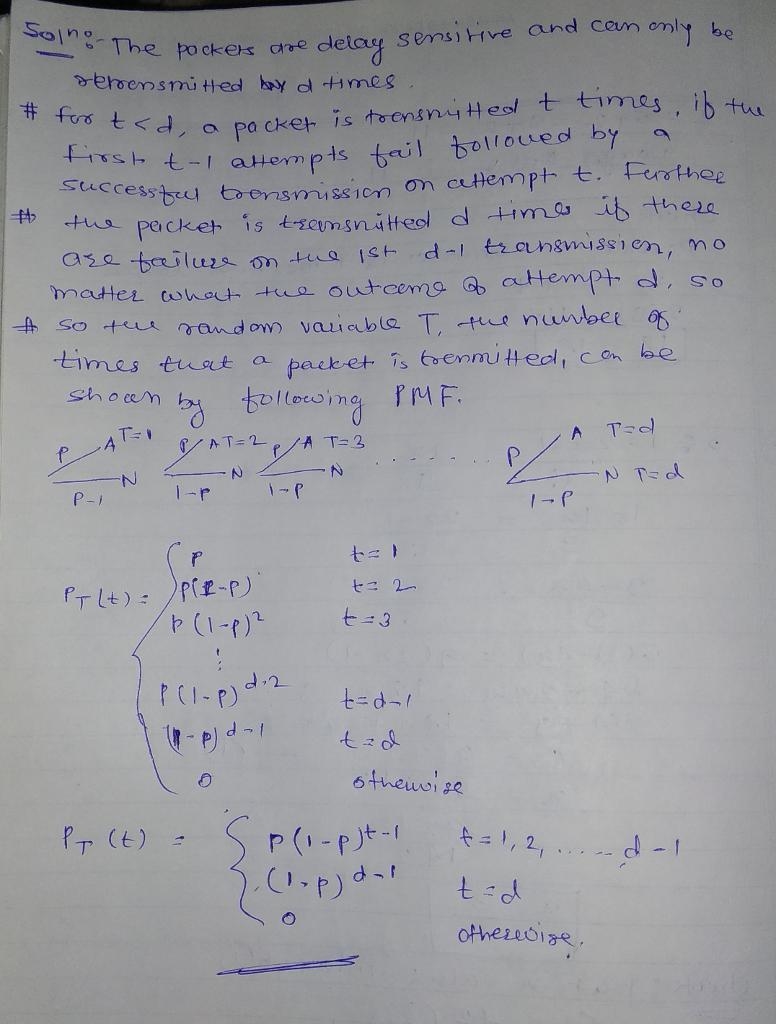 Soln:- The packets are delay sensitive and can only be
retransmitted d times.
# for t<d, a packet is transmitted t times, if the
first t-1 attempts fail followed by a
successful transmission on attempt t. Further
# the packet is transmitted d times if there
are failure on the 1st d-1 transmission, no
matter what the outcome of attempt d, so
# so the random variable T, the number of
times that a packet is trenmitted, can be
shown by following PMF.
P A T=1 P A T=2 P A T=3 ....... P A T=d
P-1 N 1-P N 1-P N 1-P N T=d
P t=1
PT(t) = P(1-P) t=2
P(1-P)2 t=3
⋮
P(1-P)d-2 t=d-1
(1-P)d-1 t=d
0 otherwise
PT(t) = { P(1-P)t-1 t=1,2,.....d-1
(1-P)d-1 t=d
0 otherwise.